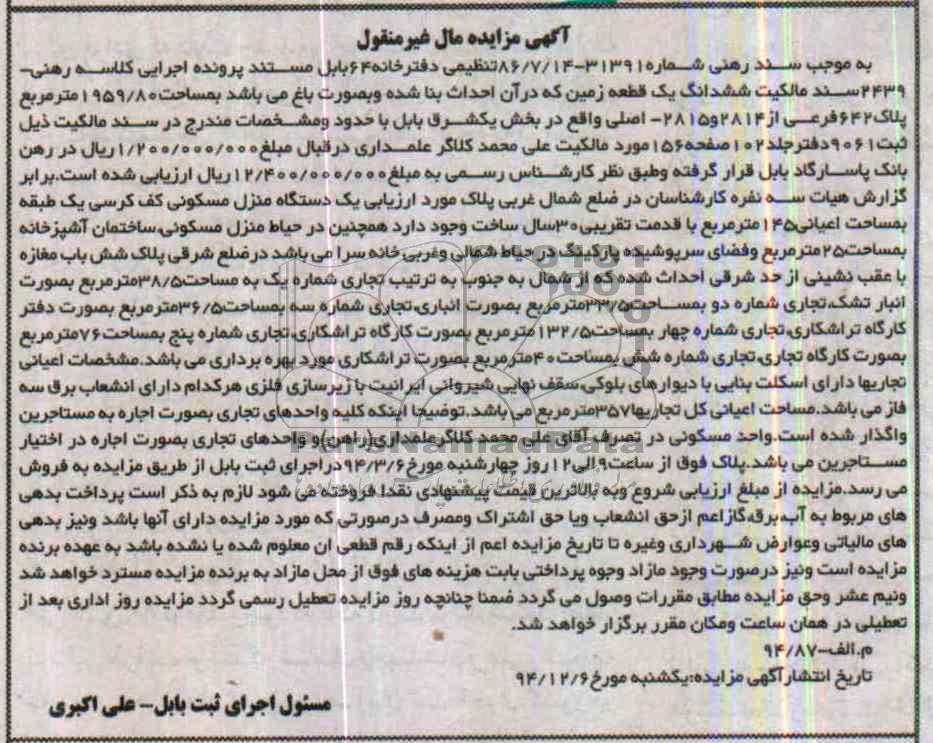 آگهی مزایده مال غیرمنقول
به موجب سند رهنی شماره۳۱۳۹۱-۸۶/۷/۱۴تنظیمی دفترخانه۶۴بابل مستند پرونده اجرایی کلاسه رهنی-
۲۴۳۹سند مالکیت ششدانگ یک قطعه زمین که درآن احداث بنا شده وبصورت باغ می باشد بمساحت۱۹۵۹/۸۰مترمربع
پلاک۶۴۲فرعی از۲۸۱۴و۲۸۱۵- اصلی واقع در بخش یکشرق بابل با حدود ومشخصات مندرج در سند مالکیت ذیل
ثبت۹۰۶۱دفترجلد۱۰۲صفحه۱۵۶مورد مالکیت علی محمد کلاگر علمداری درقبال مبلغ۱/۲۰۰/۰۰۰/۰۰۰ریال در رهن
بانک پاسارگاد بابل قرار گرفته وطبق نظر کارشناس رسمی به مبلغ۱۲/۴۰۰/۰۰۰/۰۰۰ریال ارزیابی شده است.برابر
گزارش هیات سه نفره کارشناسان در ضلع شمال غربی پلاک مورد ارزیابی یک دستگاه منزل مسکونی کف کرسی یک طبقه
بمساحت اعیانی۱۴۵مترمربع با قدمت تقریبی۳۰سال ساخت وجود دارد همچنین در حیاط منزل مسکونی،ساختمان آشپزخانه
بمساحت۲۵مترمربع وفضای سرپوشیده پارکینگ درحیاط شمالی وغربی خانه سرا می باشد درضلع شرقی پلاک شش باب مغازه
با عقب نشینی از حد شرقی احداث شده که از شمال به جنوب به ترتیب تجاری شماره یک به مساحت۳۸/۵مترمربع بصورت
انبار تشک،تجاری شماره دو بمساحت۳۳/۵مترمربع بصورت انباری،تجاری شماره سه بمساحت۳۶/۵مترمربع بصورت دفتر
کارگاه تراشکاری،تجاری شماره چهار بمساحت۱۳۲/۵مترمربع بصورت کارگاه تراشکاری،تجاری شماره پنج بمساحت۷۶مترمربع
بصورت کارگاه تجاری،تجاری شماره شش بمساحت۴۰مترمربع بصورت تراشکاری مورد بهره برداری می باشد.مشخصات اعیانی
تجاریها دارای اسکلت بنایی با دیوارهای بلوکی،سقف نهایی شیروانی ایرانیت با زیرسازی فلزی هرکدام دارای انشعاب برق سه
فاز می باشد.مساحت اعیانی کل تجاریها۳۵۷مترمربع می باشد.توضیحا اینکه کلیه واحدهای تجاری بصورت اجاره به مستاجرین
واگذار شده است.واحد مسکونی در تصرف آقای علی محمد کلاگرعلمداری(راهن)و واحدهای تجاری بصورت اجاره در اختیار
مستاجرین می باشد.پلاک فوق از ساعت۹الی۱۲روز چهارشنبه مورخ۹۴/۳/۶دراجرای ثبت بابل از طریق مزایده به فروش
می رسد.مزایده از مبلغ ارزیابی شروع وبه بالاترین قیمت پیشنهادی نقدا فروخته می شود لازم به ذکر است پرداخت بدهی
های مربوط به آب،برق،گازاعم ازحق انشعاب ویا حق اشتراک ومصرف درصورتی که مورد مزایده دارای آنها باشد ونیز بدهی
های مالیاتی وعوارض شهرداری وغیره تا تاریخ مزایده اعم از اینکه رقم قطعی ان معلوم شده یا نشده باشد به عهده برنده
مزایده است ونیز درصورت وجود مازاد وجوه پرداختی بابت هزینه های فوق از محل مازاد به برنده مزایده مسترد خواهد شد
ونیم عشر وحق مزایده مطابق مقررات وصول می گردد ضمنا چنانچه روز مزایده تعطیل رسمی گردد مزایده روز اداری بعد از
تعطیلی در همان ساعت ومکان مقرر برگزار خواهد شد.
م.الف-۹۴/۸۷
تاریخ انتشارآگهی مزایده:یکشنبه مورخ۹۴/۱۲/۶
مسئول اجرای ثبت بابل- علی اکبری
ParsNamadData